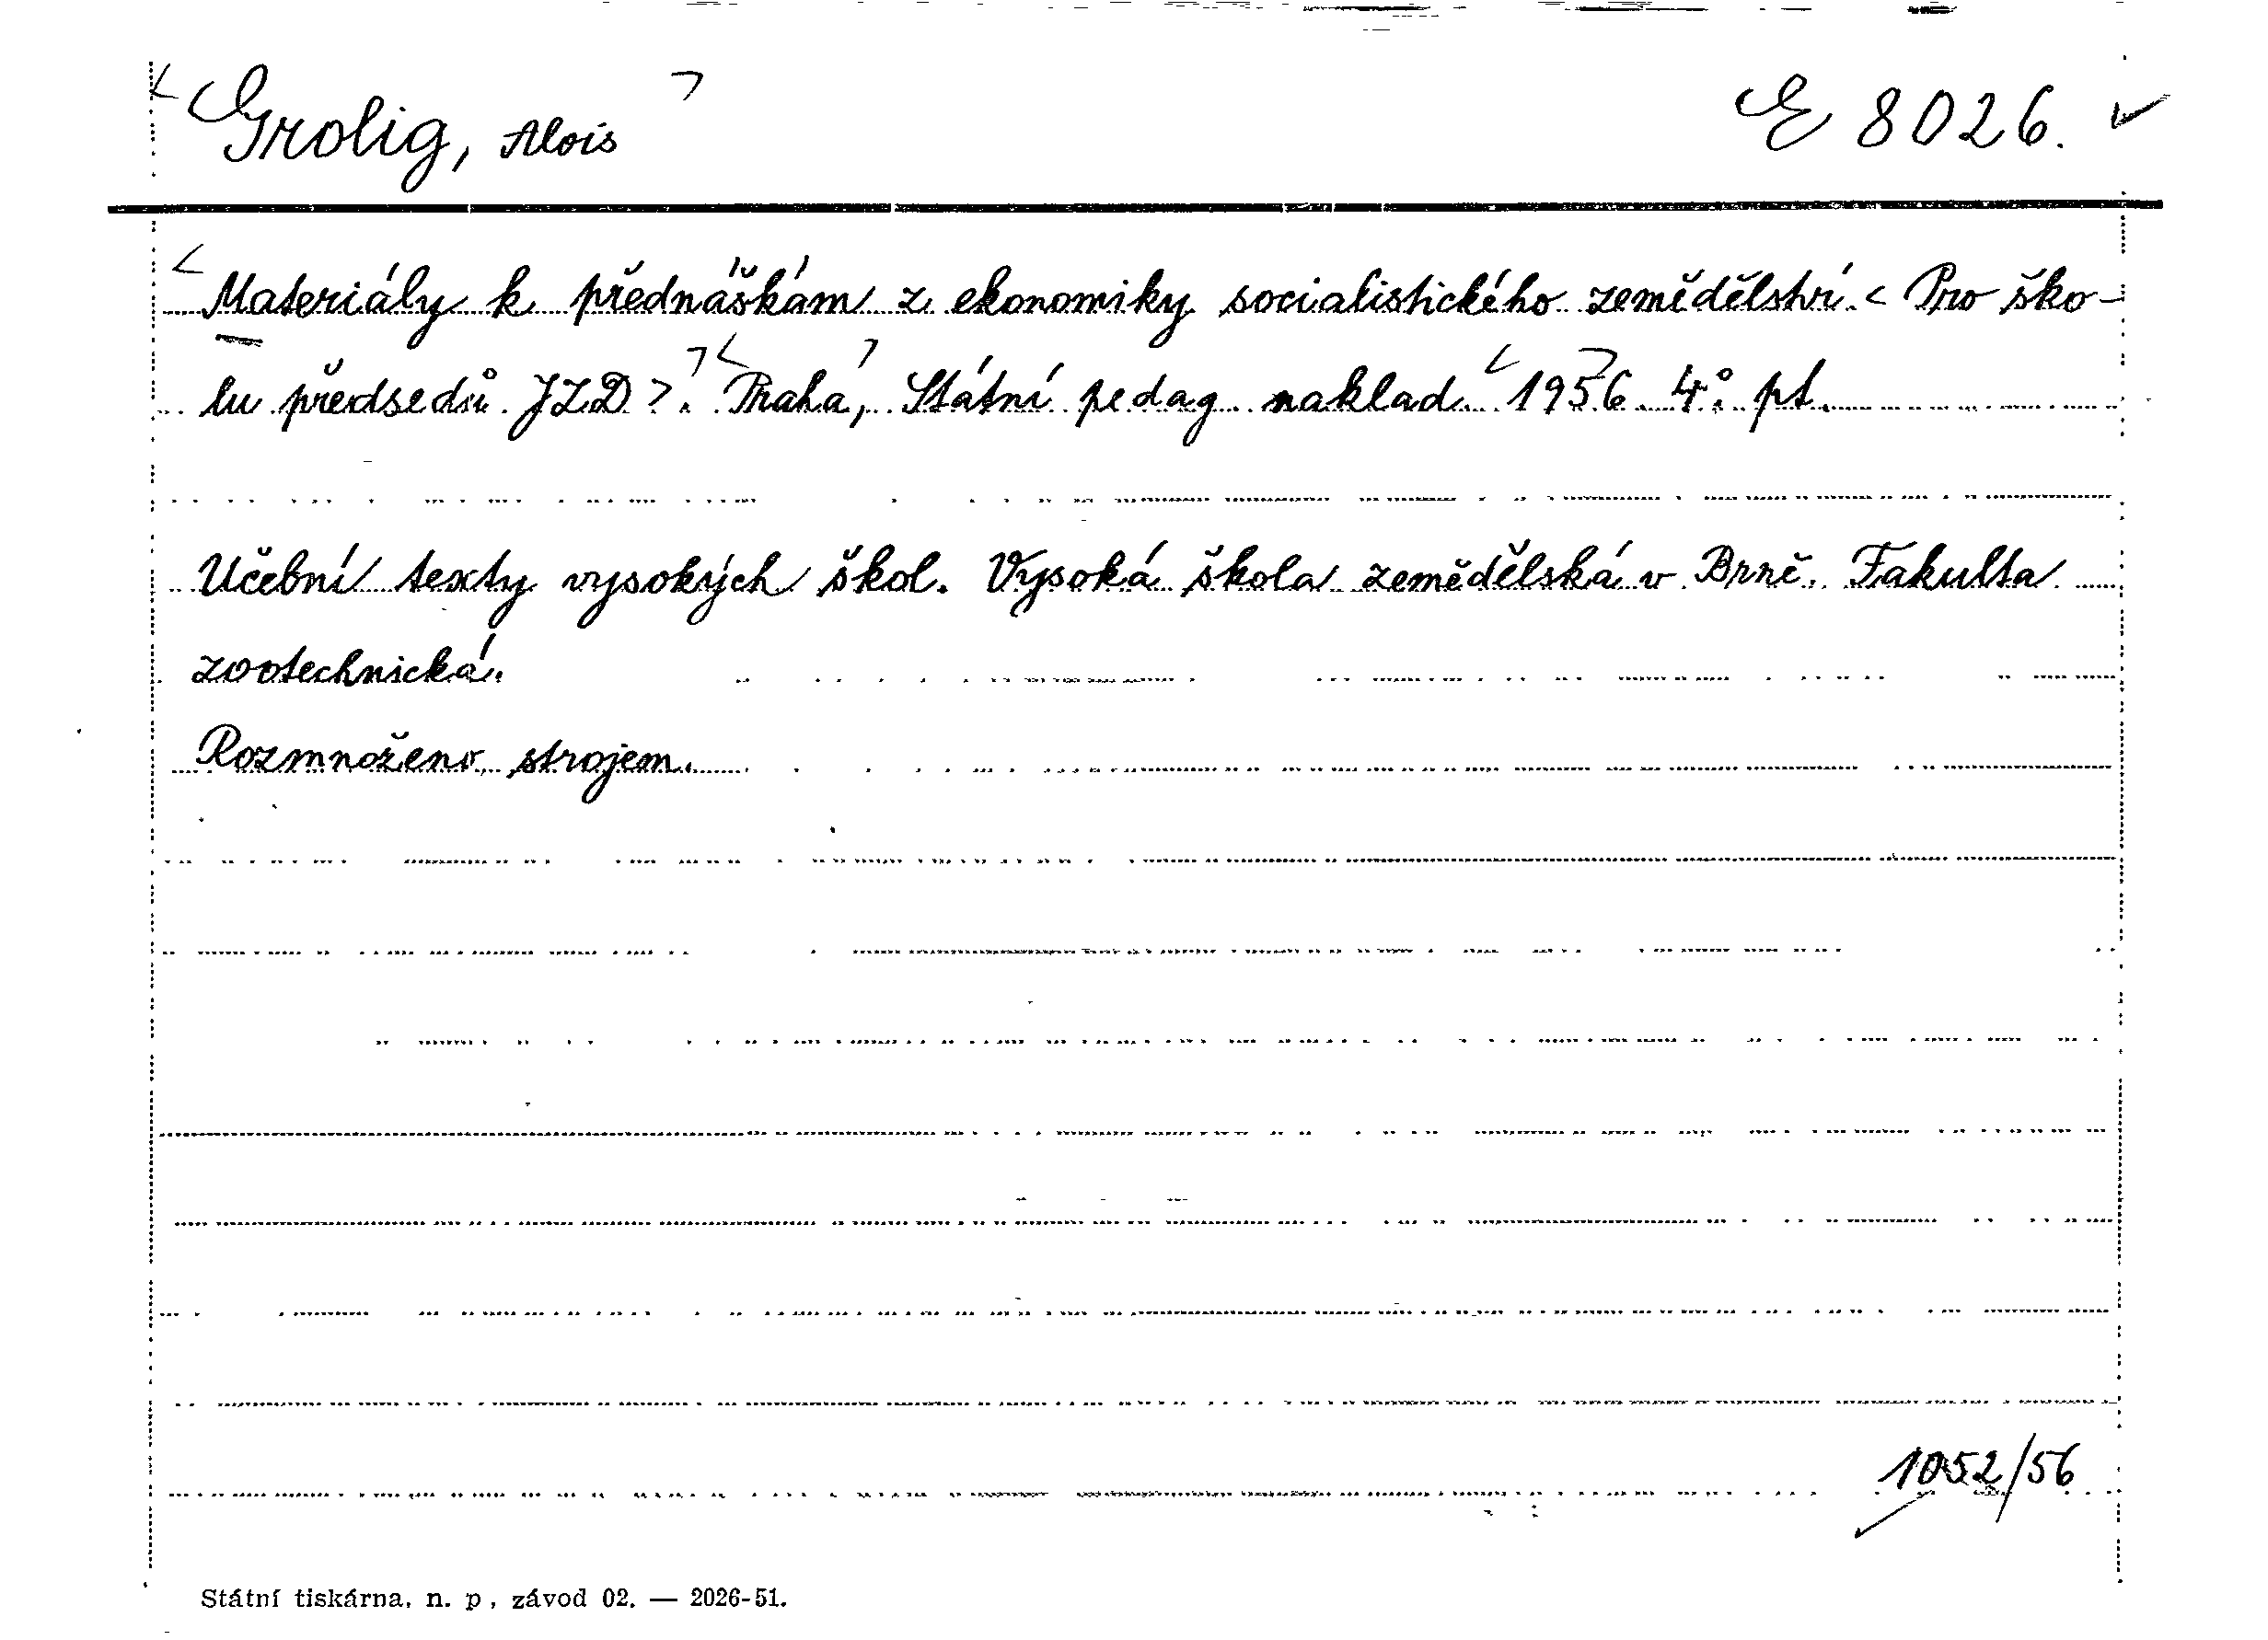 Grolig, Alois E 8026.
Materiály k přednáškám z ekonomiky socialistického zemědělství. < Pro ško-
lu předsedů JZD >. Praha, Státní pedag. naklad. 1956. 4° pt.
Učební texty vysokých škol. Vysoká škola zemědělská v Brně. Fakulta
zootechnická.
Rozmnoženo strojem.
1052/56
Státní tiskárna, n. p., závod 02. — 2026-51.